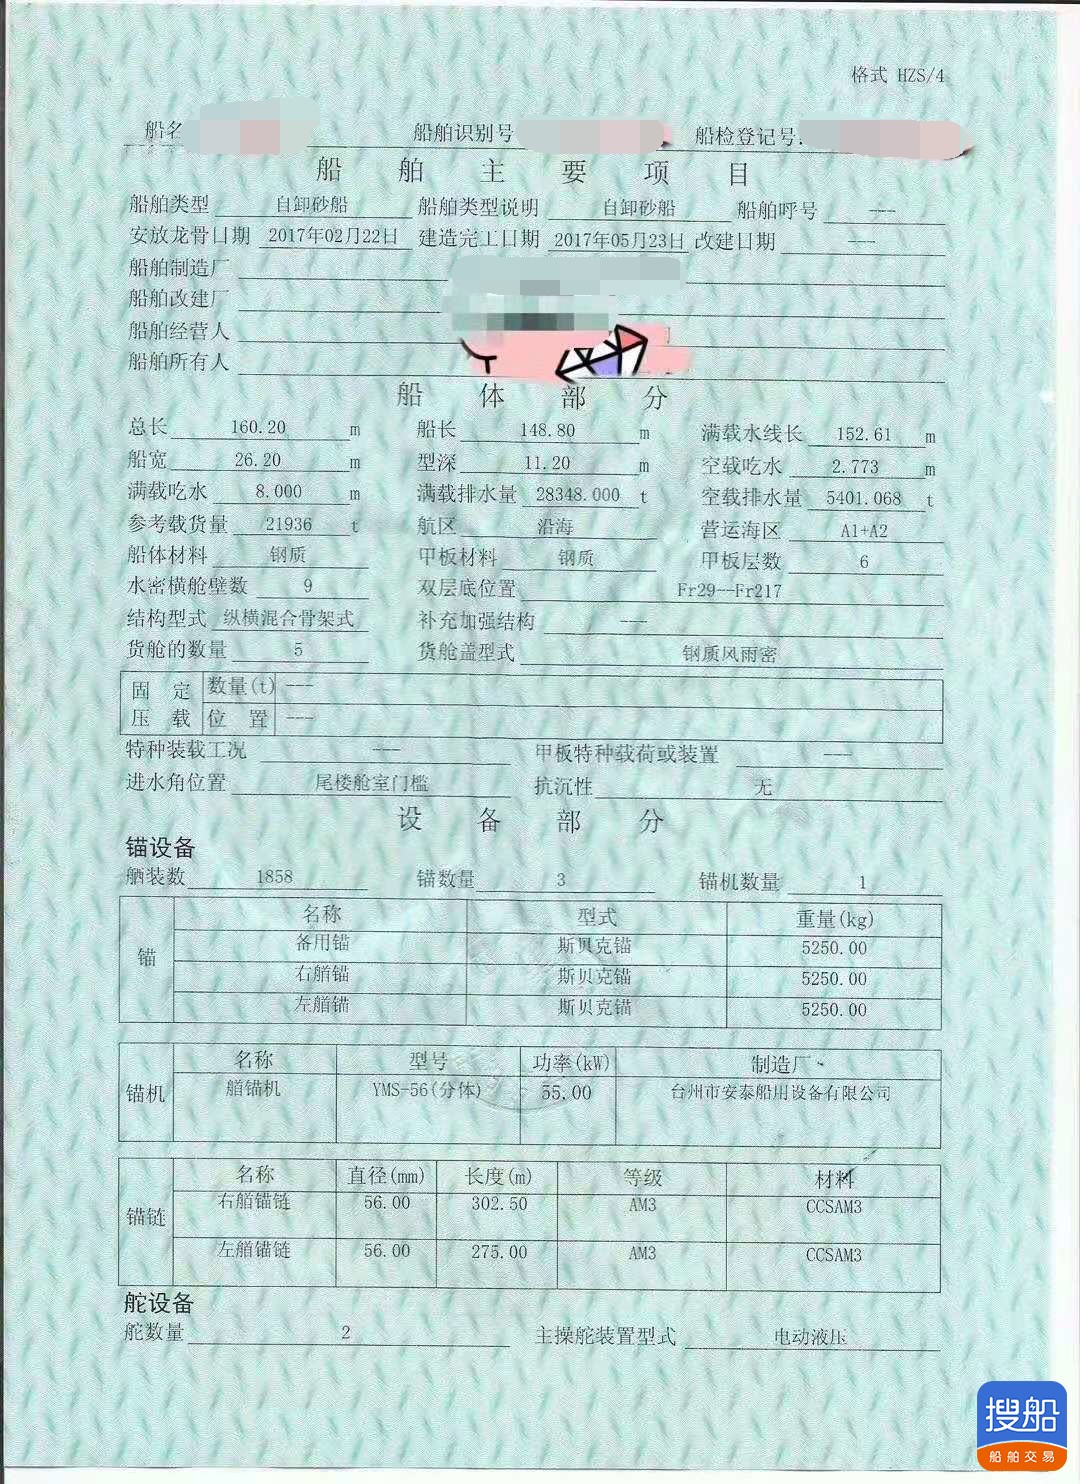 格式 HZS/4
船名 船舶识别号 船检登记号:
船舶主要项目
船舶类型 自卸砂船 船舶类型说明 自卸砂船 船舶呼号 ---
安放龙骨日期 2017年02月22日 建造完工日期 2017年05月23日 改建日期 ---
船舶制造厂
船舶改建厂
船舶经营人
船舶所有人
船体部分
总长 160.20 m 船长 148.80 m 满载水线长 152.61 m
船宽 26.20 m 型深 11.20 m 空载吃水 2.773 m
满载吃水 8.000 m 满载排水量 28348.000 t 空载排水量 5401.068 t
参考载货量 21936 t 航区 沿海 营运海区 A1+A2
船体材料 钢质 甲板材料 钢质 甲板层数 6
水密横舱壁数 9 双层底位置 Fr29--Fr217
结构型式 纵横混合骨架式 补充加强结构 ---
货舱的数量 5 货舱盖型式 钢质风雨密
固定压载 数量(t) ---
位置 ---
特种装载工况 --- 甲板特种载荷或装置 ---
进水角位置 尾楼舱室门槛 抗沉性 无
设备部分
锚设备
舾装数 1858 锚数量 3 锚机数量 1
锚 名称 型式 重量(kg)
备用锚 斯贝克锚 5250.00
右艏锚 斯贝克锚 5250.00
左艏锚 斯贝克锚 5250.00
锚机 名称 型号 功率(kW) 制造厂
艏锚机 YMS-56(分体) 55.00 台州市安泰船用设备有限公司
锚链 名称 直径(mm) 长度(m) 等级 材料
右艏锚链 56.00 302.50 AM3 CCSAM3
左艏锚链 56.00 275.00 AM3 CCSAM3
舵设备
舵数量 2 主操舵装置型式 电动液压
搜船
船舶交易